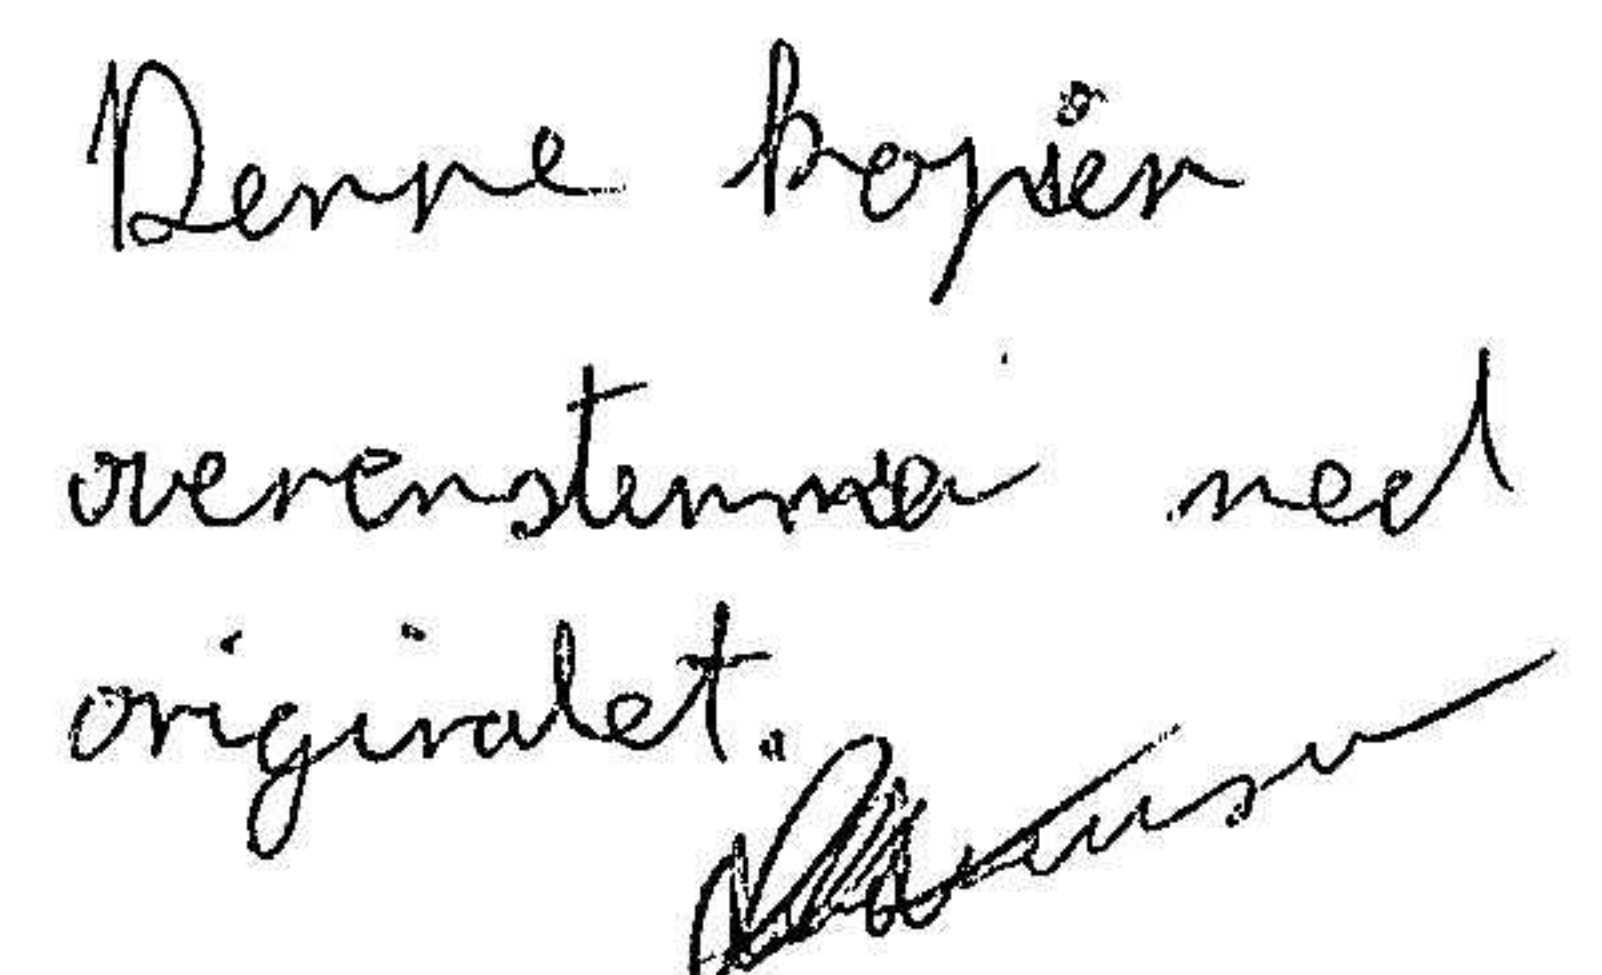 Denne kopien
overenstemmer med
originalet.